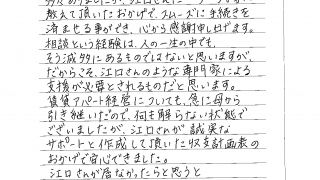 教えて頂いたおかげで、スムーズに手続きを
済ませる事ができ、心から感謝申し上げます。
相談という経験は、人の一生の中でも、
そう減多にあるものではないと思いますが、
だからこそ、江口さんのような専門家による
支援が必要とされるものだと思います。
賃貸アパート経営についても、急に母から
引き継いだので、何も解らない状態で
ございましたが、江口さんが誠実な
サポートと作成して頂いた収支計画表の
おかげで安心できました。
江口さんが居なかったらと思うと